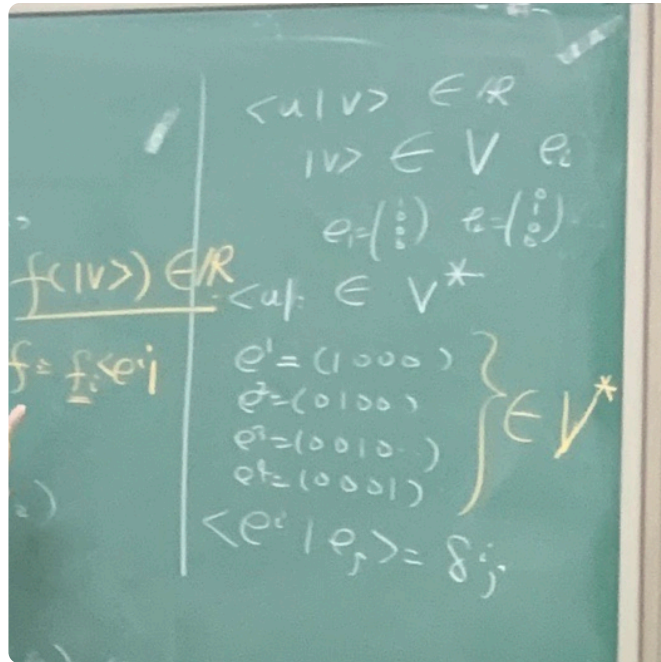 f(|v>) ∈ ℝ
f = f_i <e^i|
<u|v> ∈ ℝ
|v> ∈ V e_i
e_1 = (1 0 0 0) e_2 = (0 1 0 0)
<u| ∈ V*
e^1 = (1 0 0 0)
e^2 = (0 1 0 0)
e^3 = (0 0 1 0)
e^4 = (0 0 0 1)
} ∈ V*
<e^i | e_j> = δ^i_j